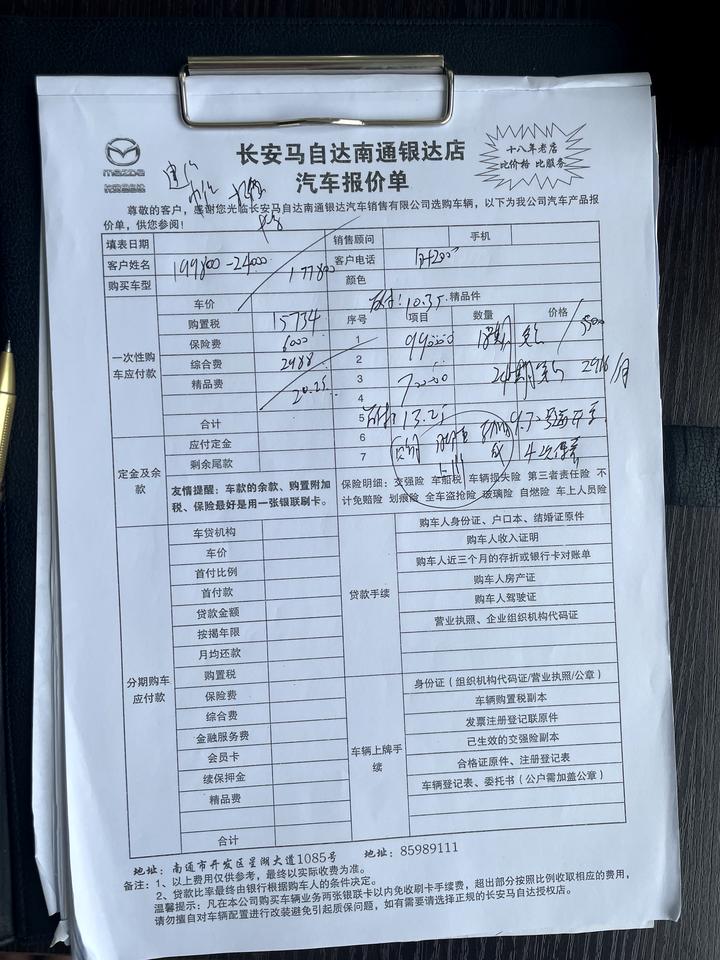 mazda
长安马自达
长安马自达南通银达店
汽车报价单
十八年老店
比价格 比服务
尊敬的客户，感谢您光临长安马自达南通银达汽车销售有限公司选购车辆，以下为我公司汽车产品报
价单，供您参阅！
填表日期 销售顾问 手机
客户姓名 199800-24000 客户电话
购买车型 177800 颜色
一次性购车应付款
车价 10.35 精品件
购置税 15734 序号 项目 数量 价格
保险费 6000 1 99000 18期 5500
综合费 2988 2
精品费 20.25 3 70000 24期 2916/月
4
合计 5 13.25
定金及余款
应付定金 6
剩余尾款 7
友情提醒：车款的余款、购置附加
税、保险最好是用一张银联刷卡。
保险明细：交强险 车船税 车辆损失险 第三者责任险 不
计免赔险 划痕险 全车盗抢险 玻璃险 自燃险 车上人员险
分期购车应付款
车贷机构
车价
首付比例
首付款
贷款金额
按揭年限
月均还款
购置税
保险费
综合费
金融服务费
会员卡
续保押金
精品费
合计
贷款手续
购车人身份证、户口本、结婚证原件
购车人收入证明
购车人近三个月的存折或银行卡对账单
购车人房产证
购车人驾驶证
营业执照、企业组织机构代码证
车辆上牌手续
身份证（组织机构代码证/营业执照/公章）
车辆购置税副本
发票注册登记联原件
已生效的交强险副本
合格证原件、注册登记表
车辆登记表、委托书（公户需加盖公章）
地址：南通市开发区星湖大道1085号 地址：85989111
备注：1、以上费用仅供参考，最终以实际收费为准。
2、贷款比率最终由银行根据购车人的条件决定。
温馨提示：凡在本公司购买车辆业务两张银联卡以内免收刷卡手续费，超出部分按照比例收取相应的费用，
请勿擅自对车辆配置进行改装避免引起质保问题，如有需要请选择正规的长安马自达授权店。